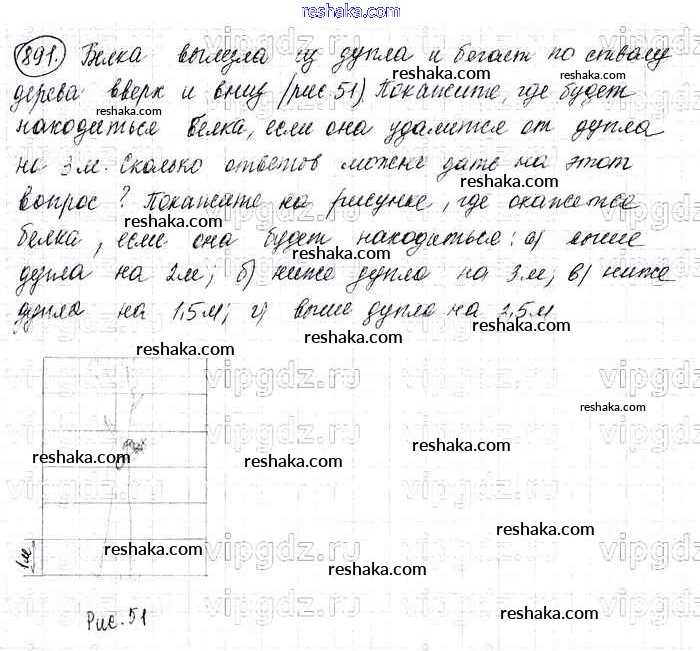 reshaka.com
891. Белка вылезла из дупла и бегает по стволу
дерева вверх и вниз (рис. 51). Покажите, где будет
reshaka.com
находиться белка, если она удалится от дупла
на 3 м. Сколько ответов можно дать на этот
reshaka.com
вопрос? Покажите на рисунке, где окажется
reshaka.com
белка, если она будет находиться: а) выше
дупла на 2 м; б) ниже дупла на 3 м; в) ниже
дупла на 1,5 м; г) выше дупла на 2,5 м
reshaka.com
reshaka.com
vipgdz.ru
reshaka.com
reshaka.com
reshaka.com
reshaka.com
reshaka.com
reshaka.com
1 м
reshaka.com
Рис. 51
reshaka.com